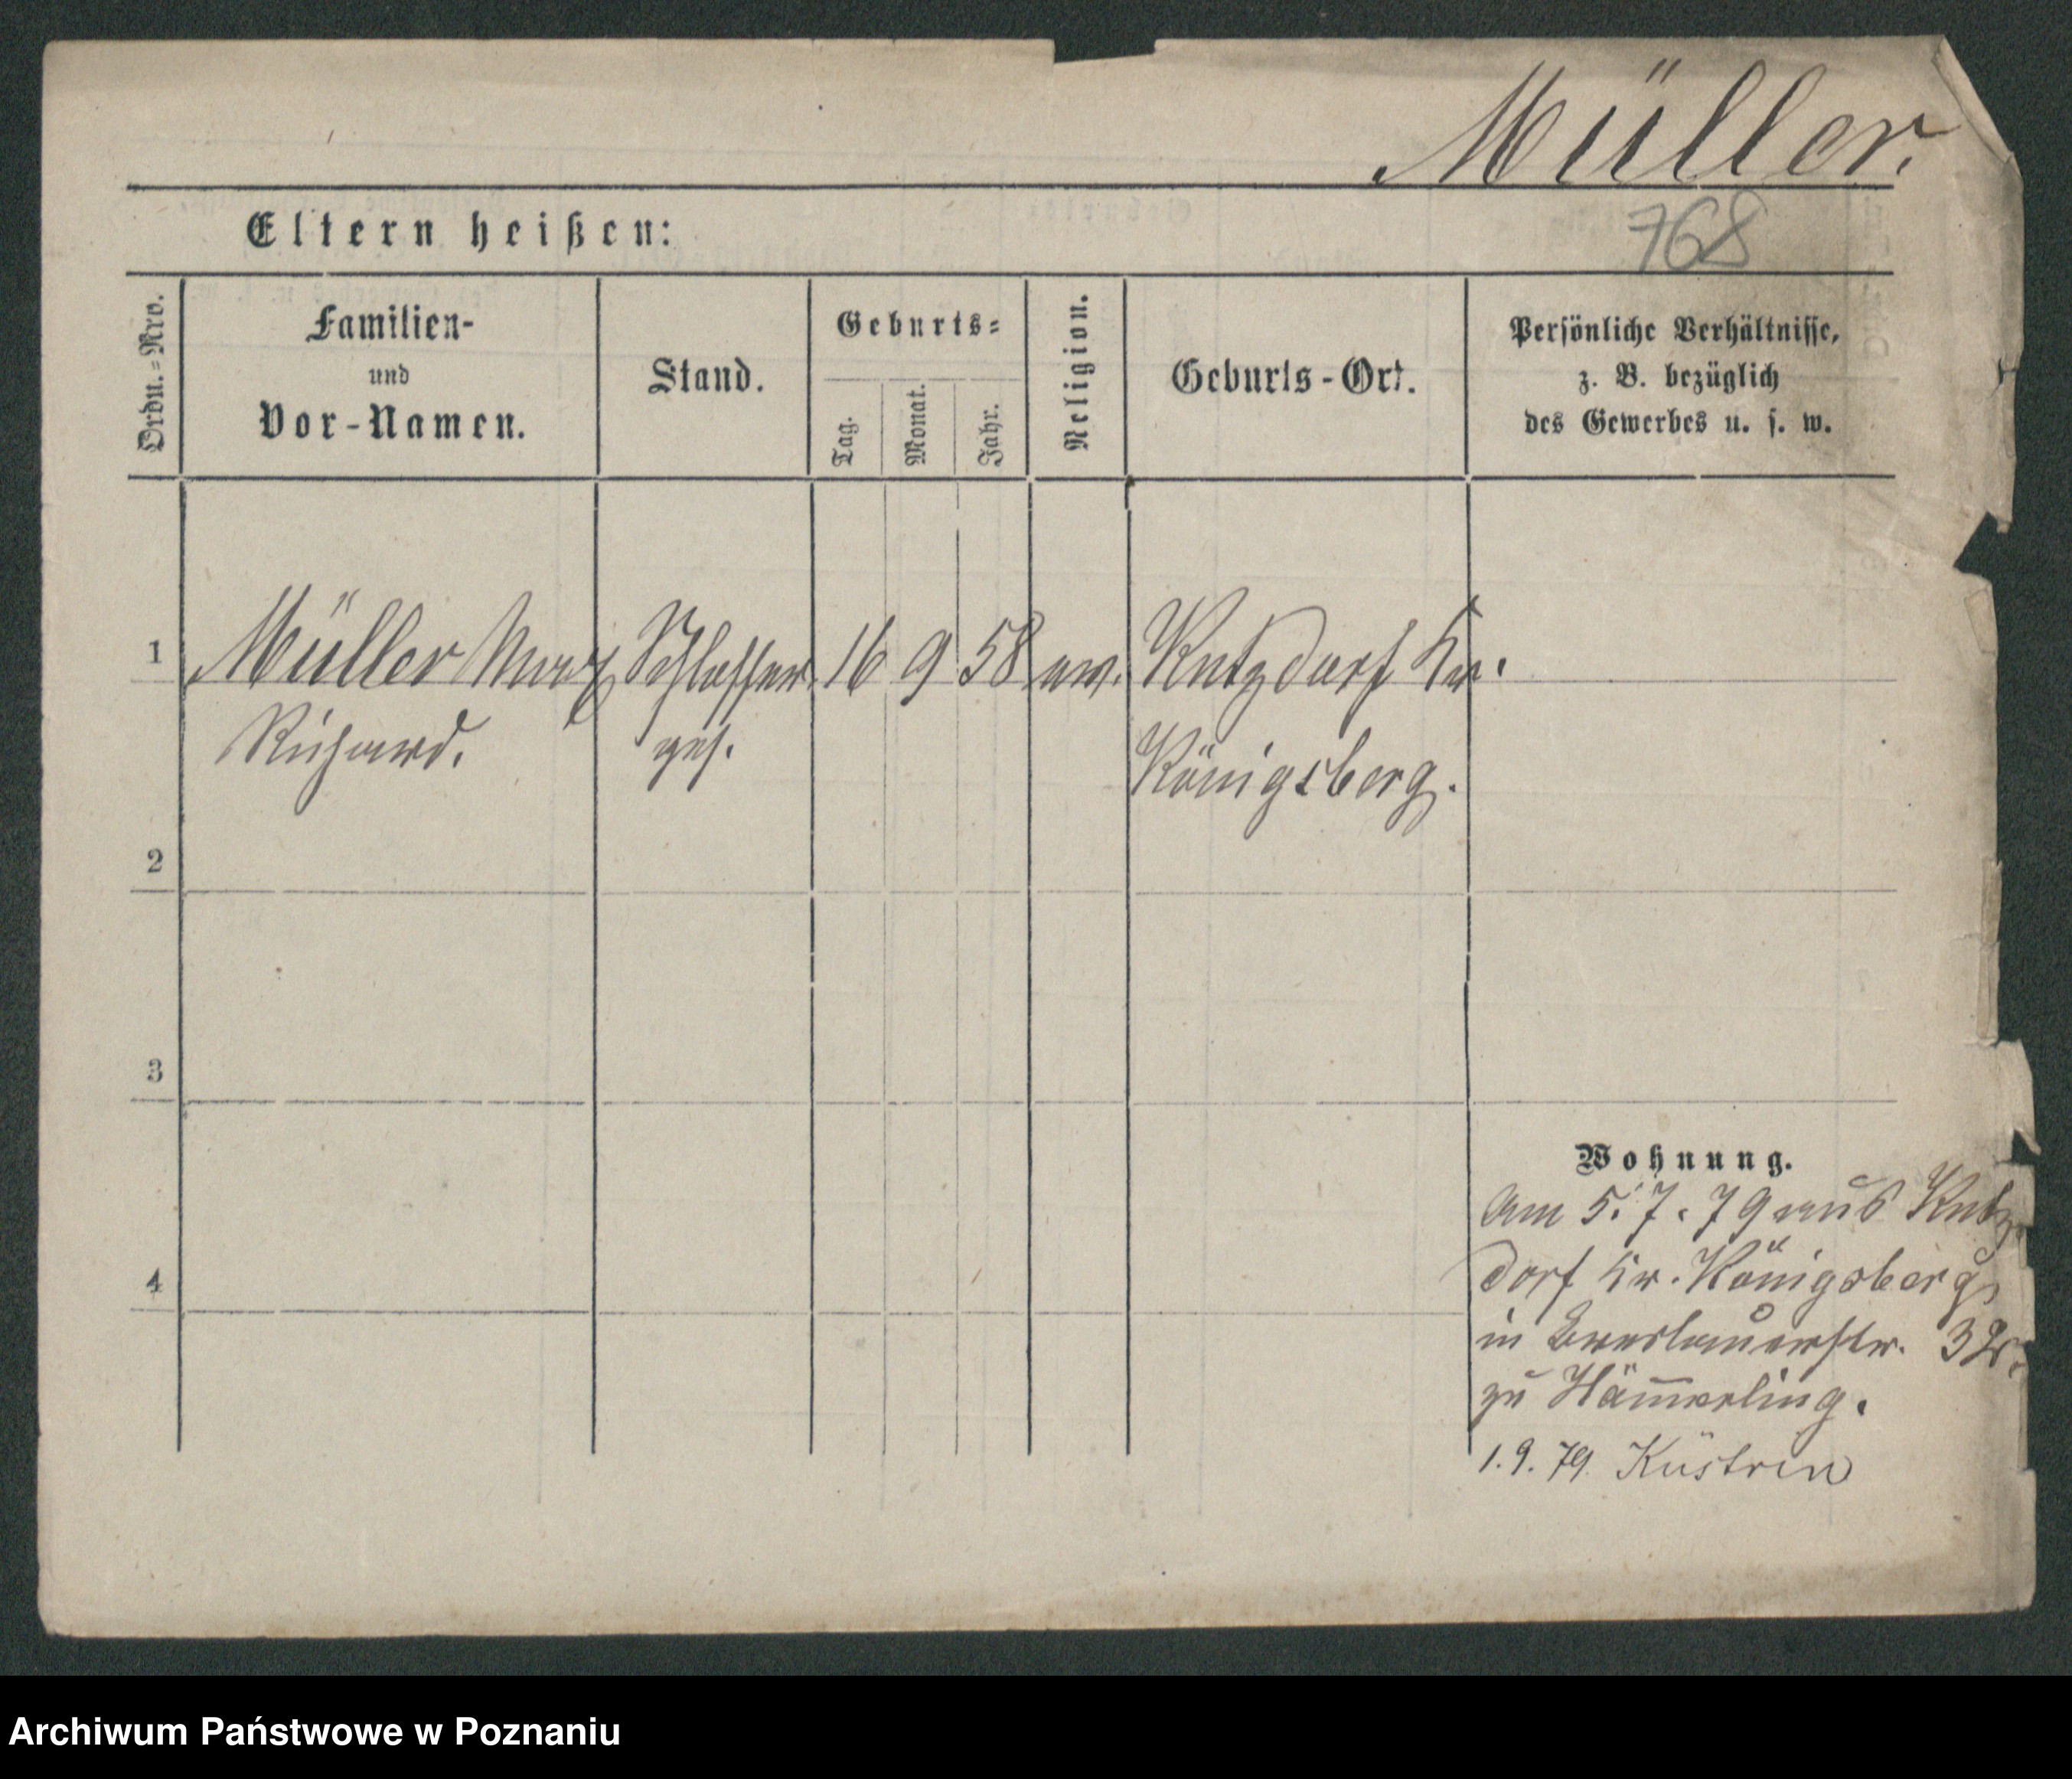 Müller.
768
Eltern heißen:
Ordn.=Nro.
Familien-
und
Vor-Namen.
Stand.
Geburts=
Tag.
Monat.
Jahr.
Religion.
Geburts-Ort.
Persönliche Verhältnisse,
z. B. bezüglich
des Gewerbes u. s. w.
1 Müller Max Schlosser 16 9 58 ev. Kutzdorf Kr.
Richard. ges. Königsberg.
2
3
4
Wohnung.
Am 5.7.79 aus Kutz-
dorf Kr. Königsberg
in Breslauerstr.
zu Häm̅erling.
1.9.79. Küstrin
Archiwum Państwowe w Poznaniu